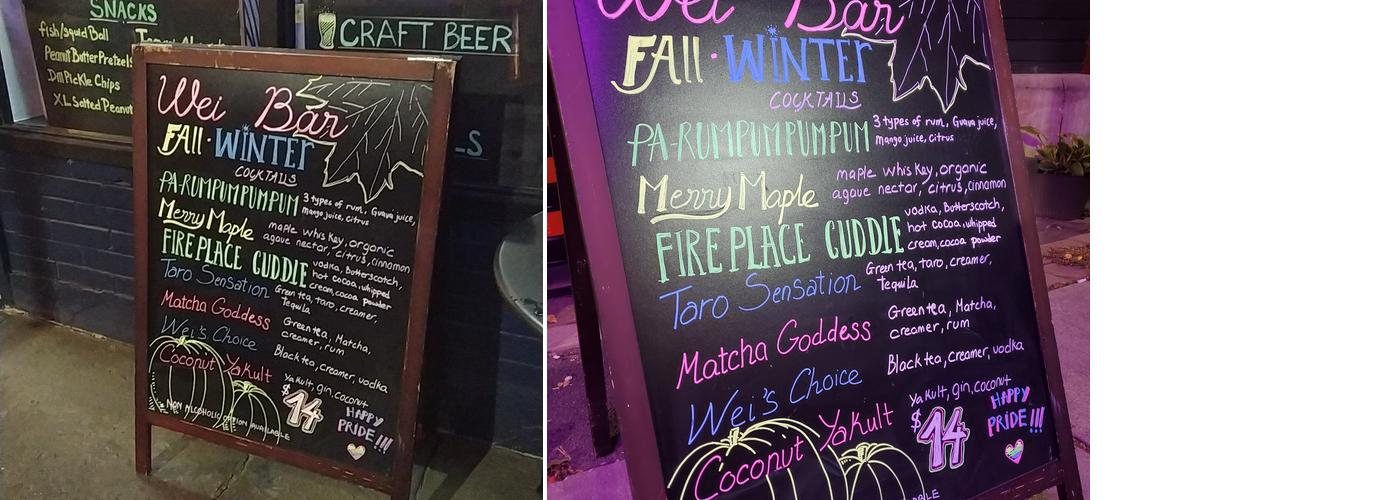 SNACKS
fish/squid Ball
Peanut Butter Pretzels
Dill Pickle Chips
XL Salted Peanut
CRAFT BEER
LS
Wei Bar
FAll · WINTEr
COCKTAILS
PA-RUMPUMPUMPUM 3 types of rum, Guava juice,
mango juice, citrus
Merry Maple maple whiskey, organic
agave nectar, citrus, cinnamon
FIREPLACE CUDDLE vodka, Butterscotch,
hot cocoa, whipped
cream, cocoa powder
Taro Sensation Green tea, taro, creamer,
Tequila
Matcha Goddess Green tea, Matcha,
creamer, rum
Wei's Choice Black tea, creamer, vodka
Coconut Yakult Yakult, gin, coconut
$14
HAPPY
PRIDE!!!
NON ALCOHOLIC OPTION AVAILABLE
Wei Bar
FAll · WINTEr
COCKTAILS
PA-RUMPUMPUMPUM 3 types of rum, Guava juice,
mango juice, citrus
Merry Maple maple whiskey, organic
agave nectar, citrus, cinnamon
FIREPLACE CUDDLE vodka, Butterscotch,
hot cocoa, whipped
cream, cocoa powder
Taro Sensation Green tea, taro, creamer,
Tequila
Matcha Goddess Green tea, Matcha,
creamer, rum
Wei's Choice Black tea, creamer, vodka
Coconut Yakult Yakult, gin, coconut
$14
HAPPY
PRIDE!!!
ABLE